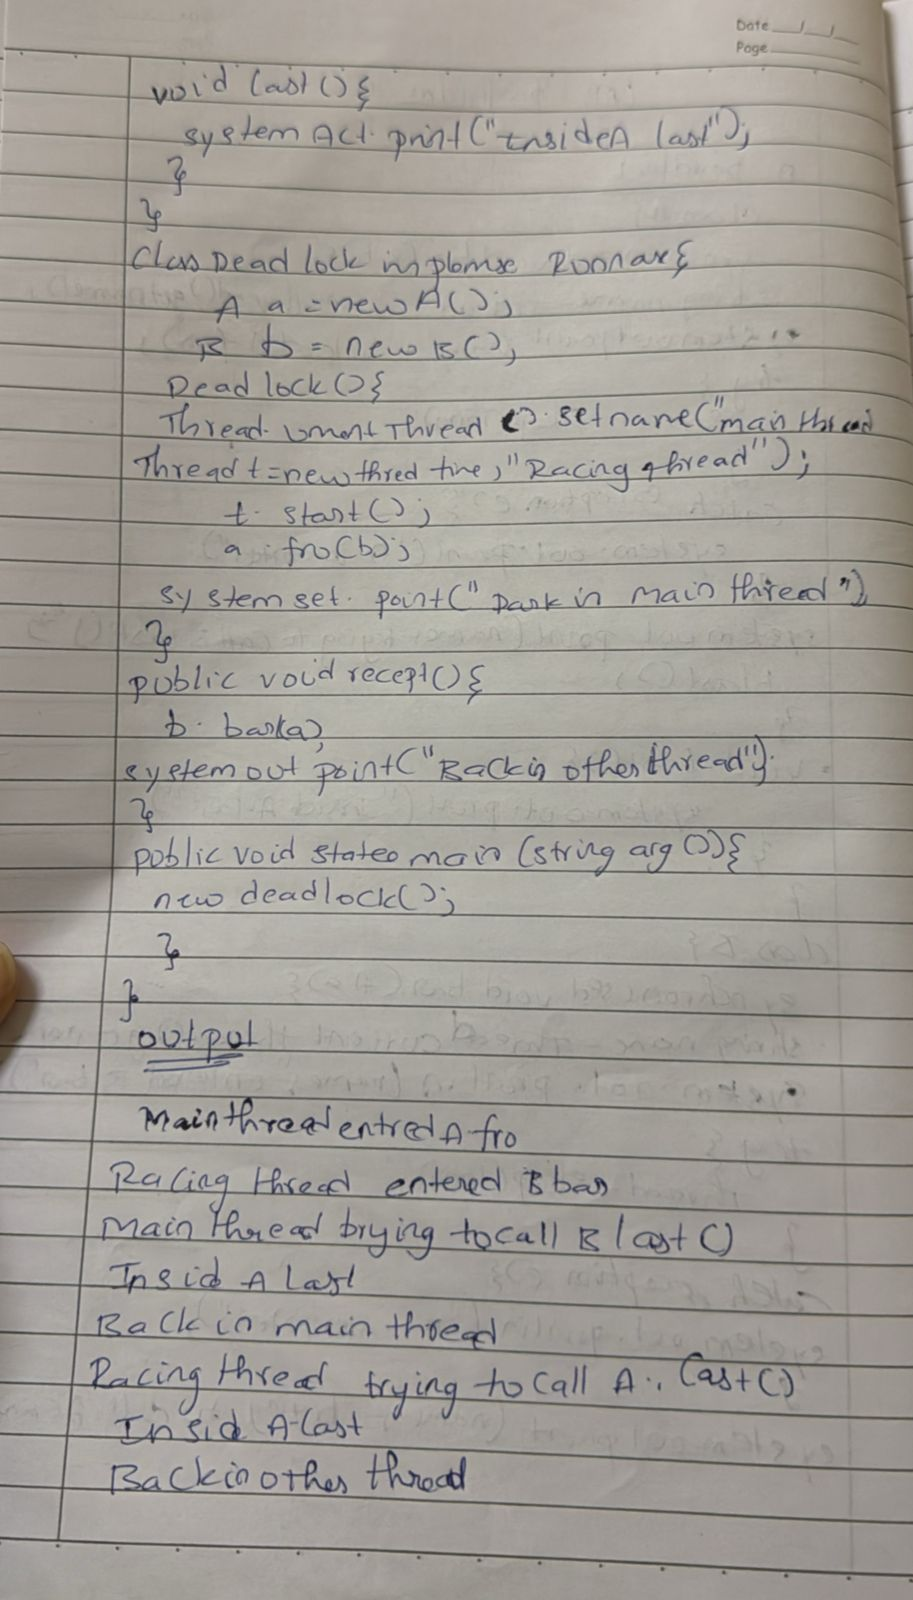 Date
Page
void last () {
system Act. print ("InsideA last");
}
}
Class Dead lock implomse Ronnax {
A a = new A();
B b = new B();
Dead lock () {
Thread. Thread (). setname ("main thread
Thread t = new thred time, "Racing thread");
t. start ();
a . fro (b);
system set. point (" in main thread")
}
public void recept () {
b. bar(a)
system out point ("Back in other thread")
}
public void stateo main (string arg ()) {
new deadlock ();
}
}
output
Main thread entred A fro
Racing thread entered B bar
Main thread brying to call B last ()
Insid A Last
Back in main thread
Racing thread trying to call A.. last ()
Insid A-last
Back in other thread